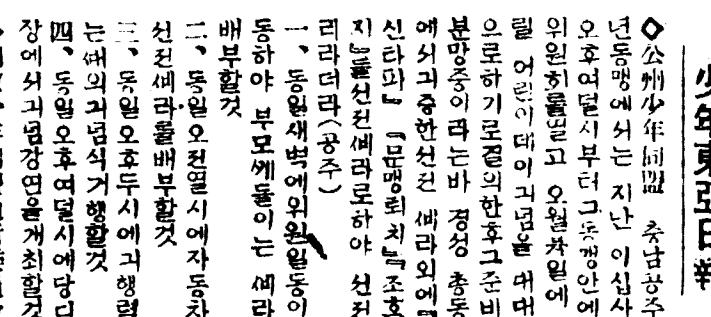 少年東亞日報
◇公州少年同盟 충남공주
년동맹에서는 지난 이십사
오후여덜시부터그동맹안에
위원회를열고 오월 일에
릴 어린이데이긔념을 대대
으로하기로결의한후그준비
분망중이라는바 경성 총동
에서긔증한선전 ᄲᅵ라외에『
신타파』『문맹퇴치』『조혼
지』들선전ᄲᅵ라로하야 선전
리라더라(공주)
一、동일새벽에위원일동이
동하야 부모ᄭᅦ들이는 ᄲᅵ라
배부할것
二、동일오전열시에자동차
선전ᄲᅵ라를배부할것
三、동일오후두시에긔행렬
는ᄯᅢ의긔념식거행할것
四、동일오후여덜시에당디
장에서긔념강연을개최할것